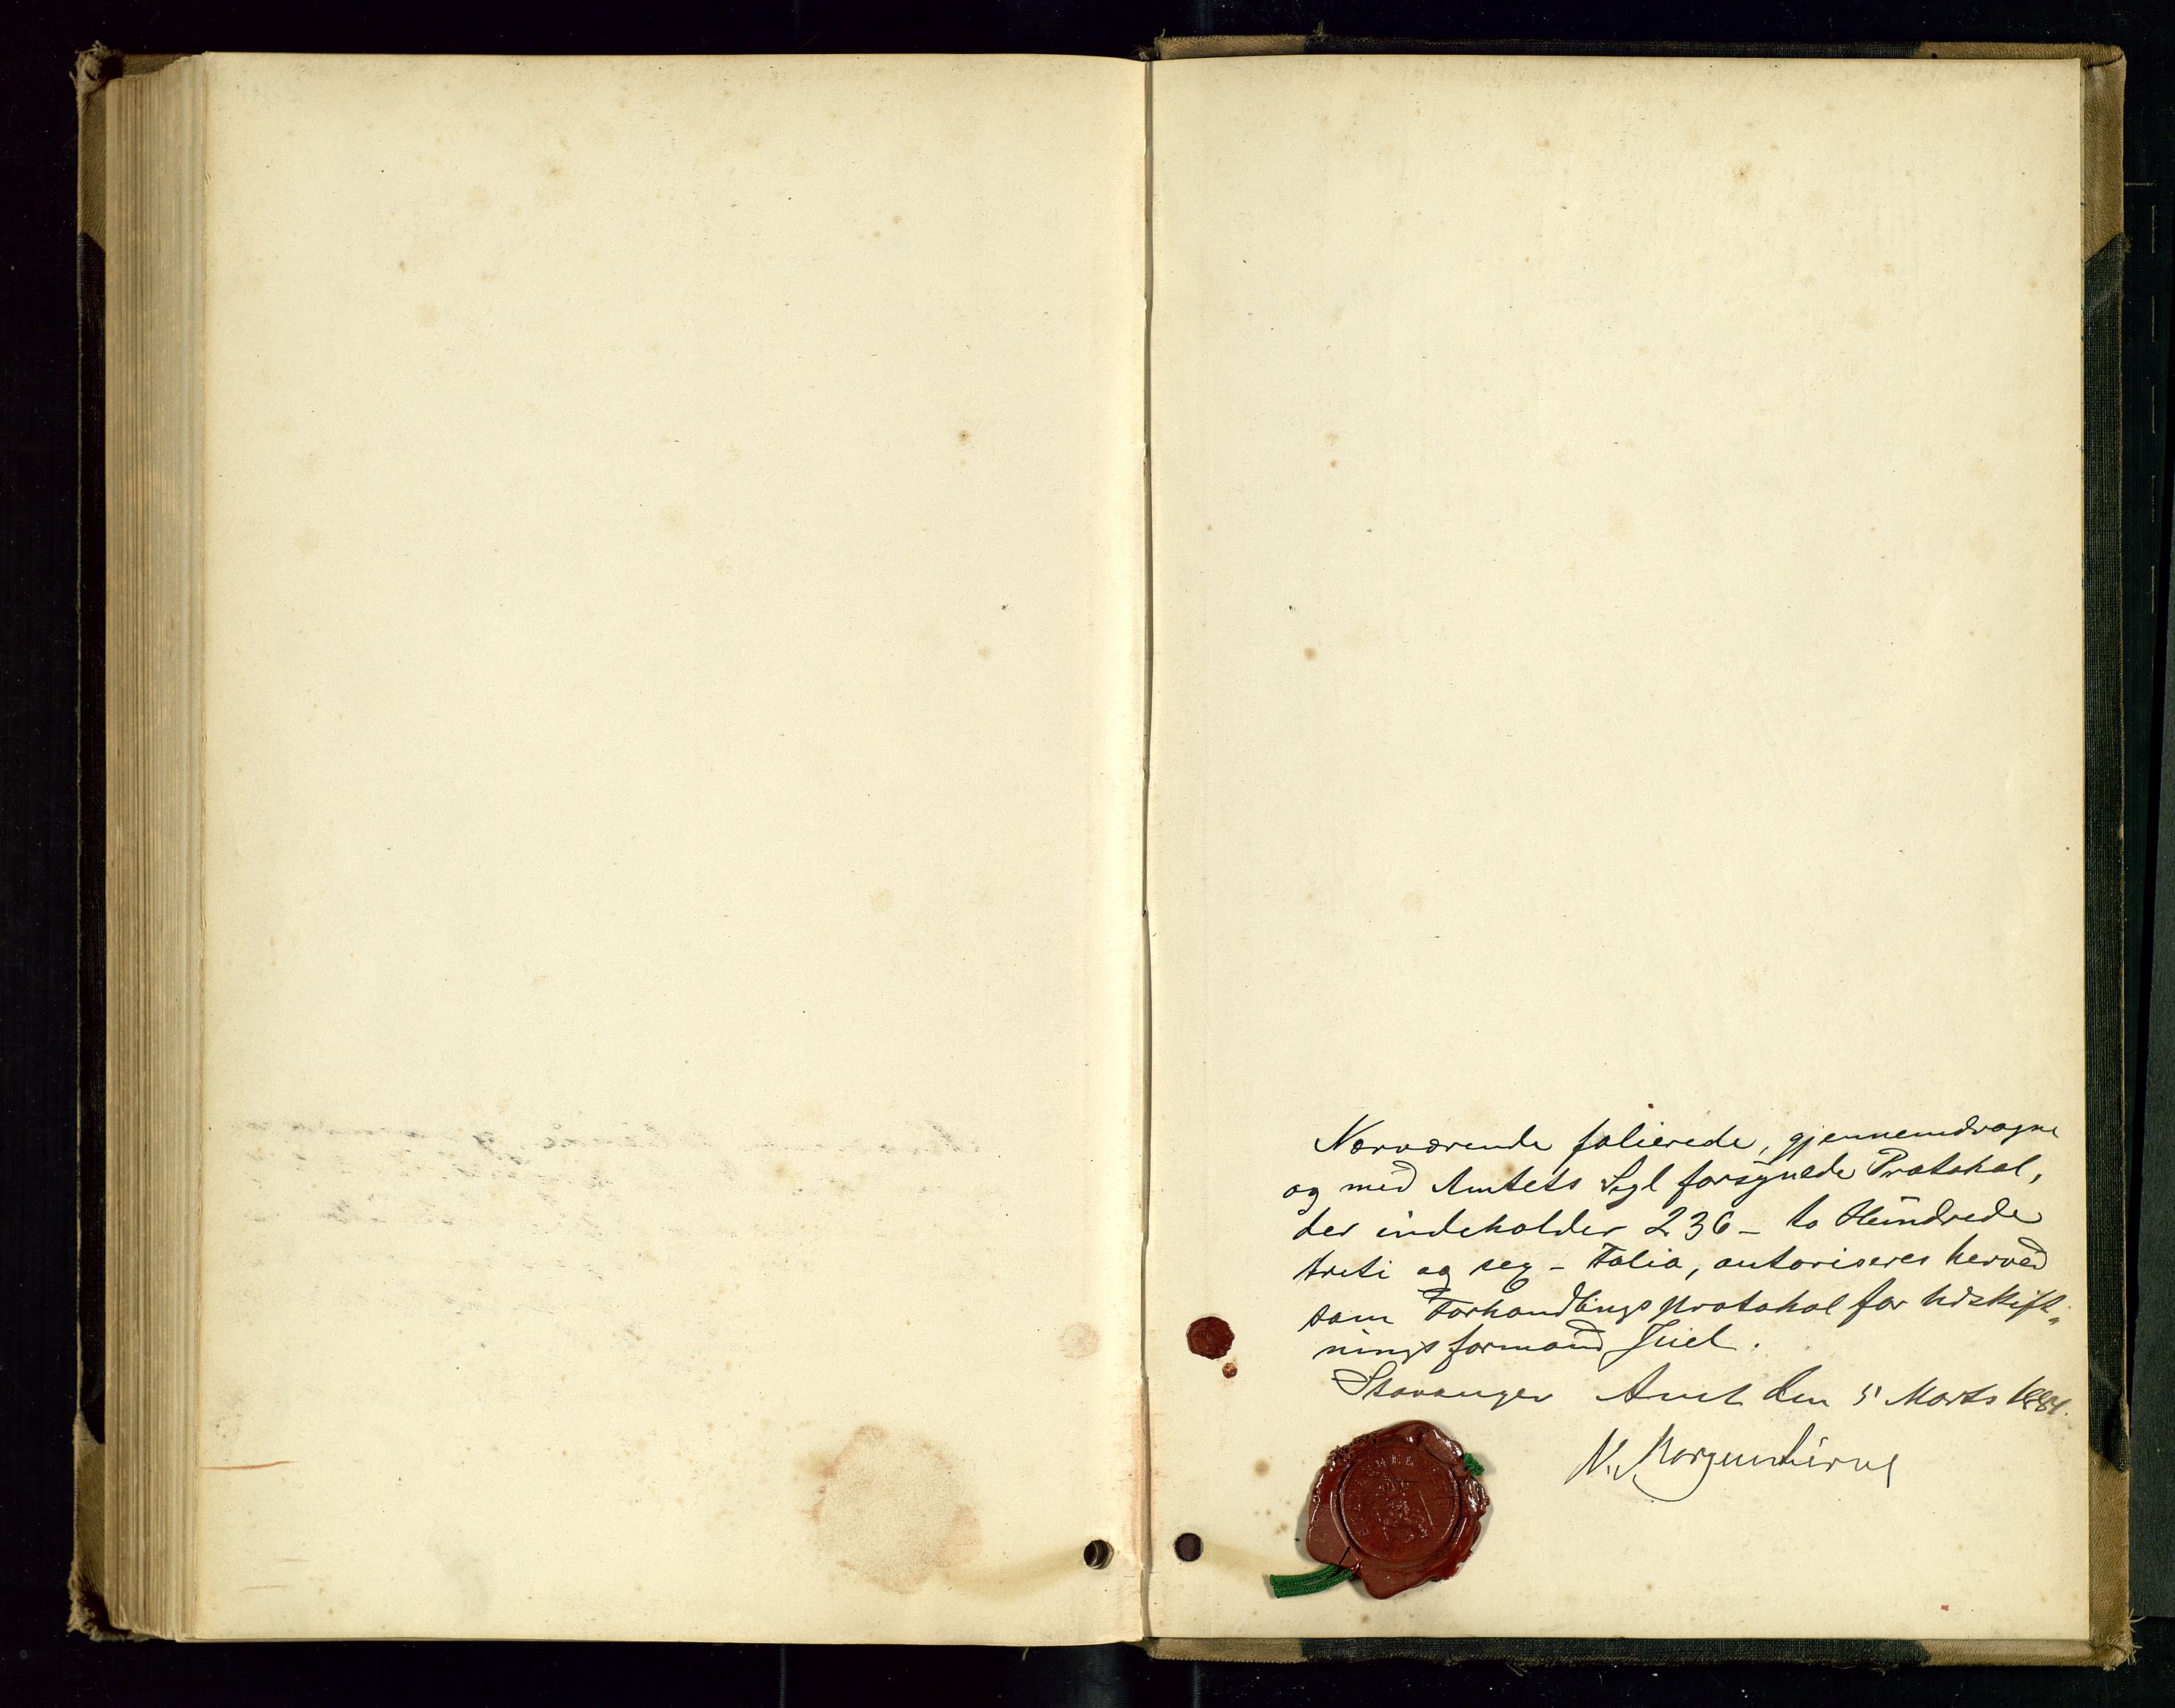 Nærværende folierede, gjennemdragne
og med Amtets Segl forsynede Protokol,
der indeholder 236 – to Hundrede
treti og sex – Folia, autoriseres herved
som Forhandlingsprotokol for Udskift-
ningsformand Juel.
Stavanger Amt den 5 Marts 1884.
N. Morgenstierne